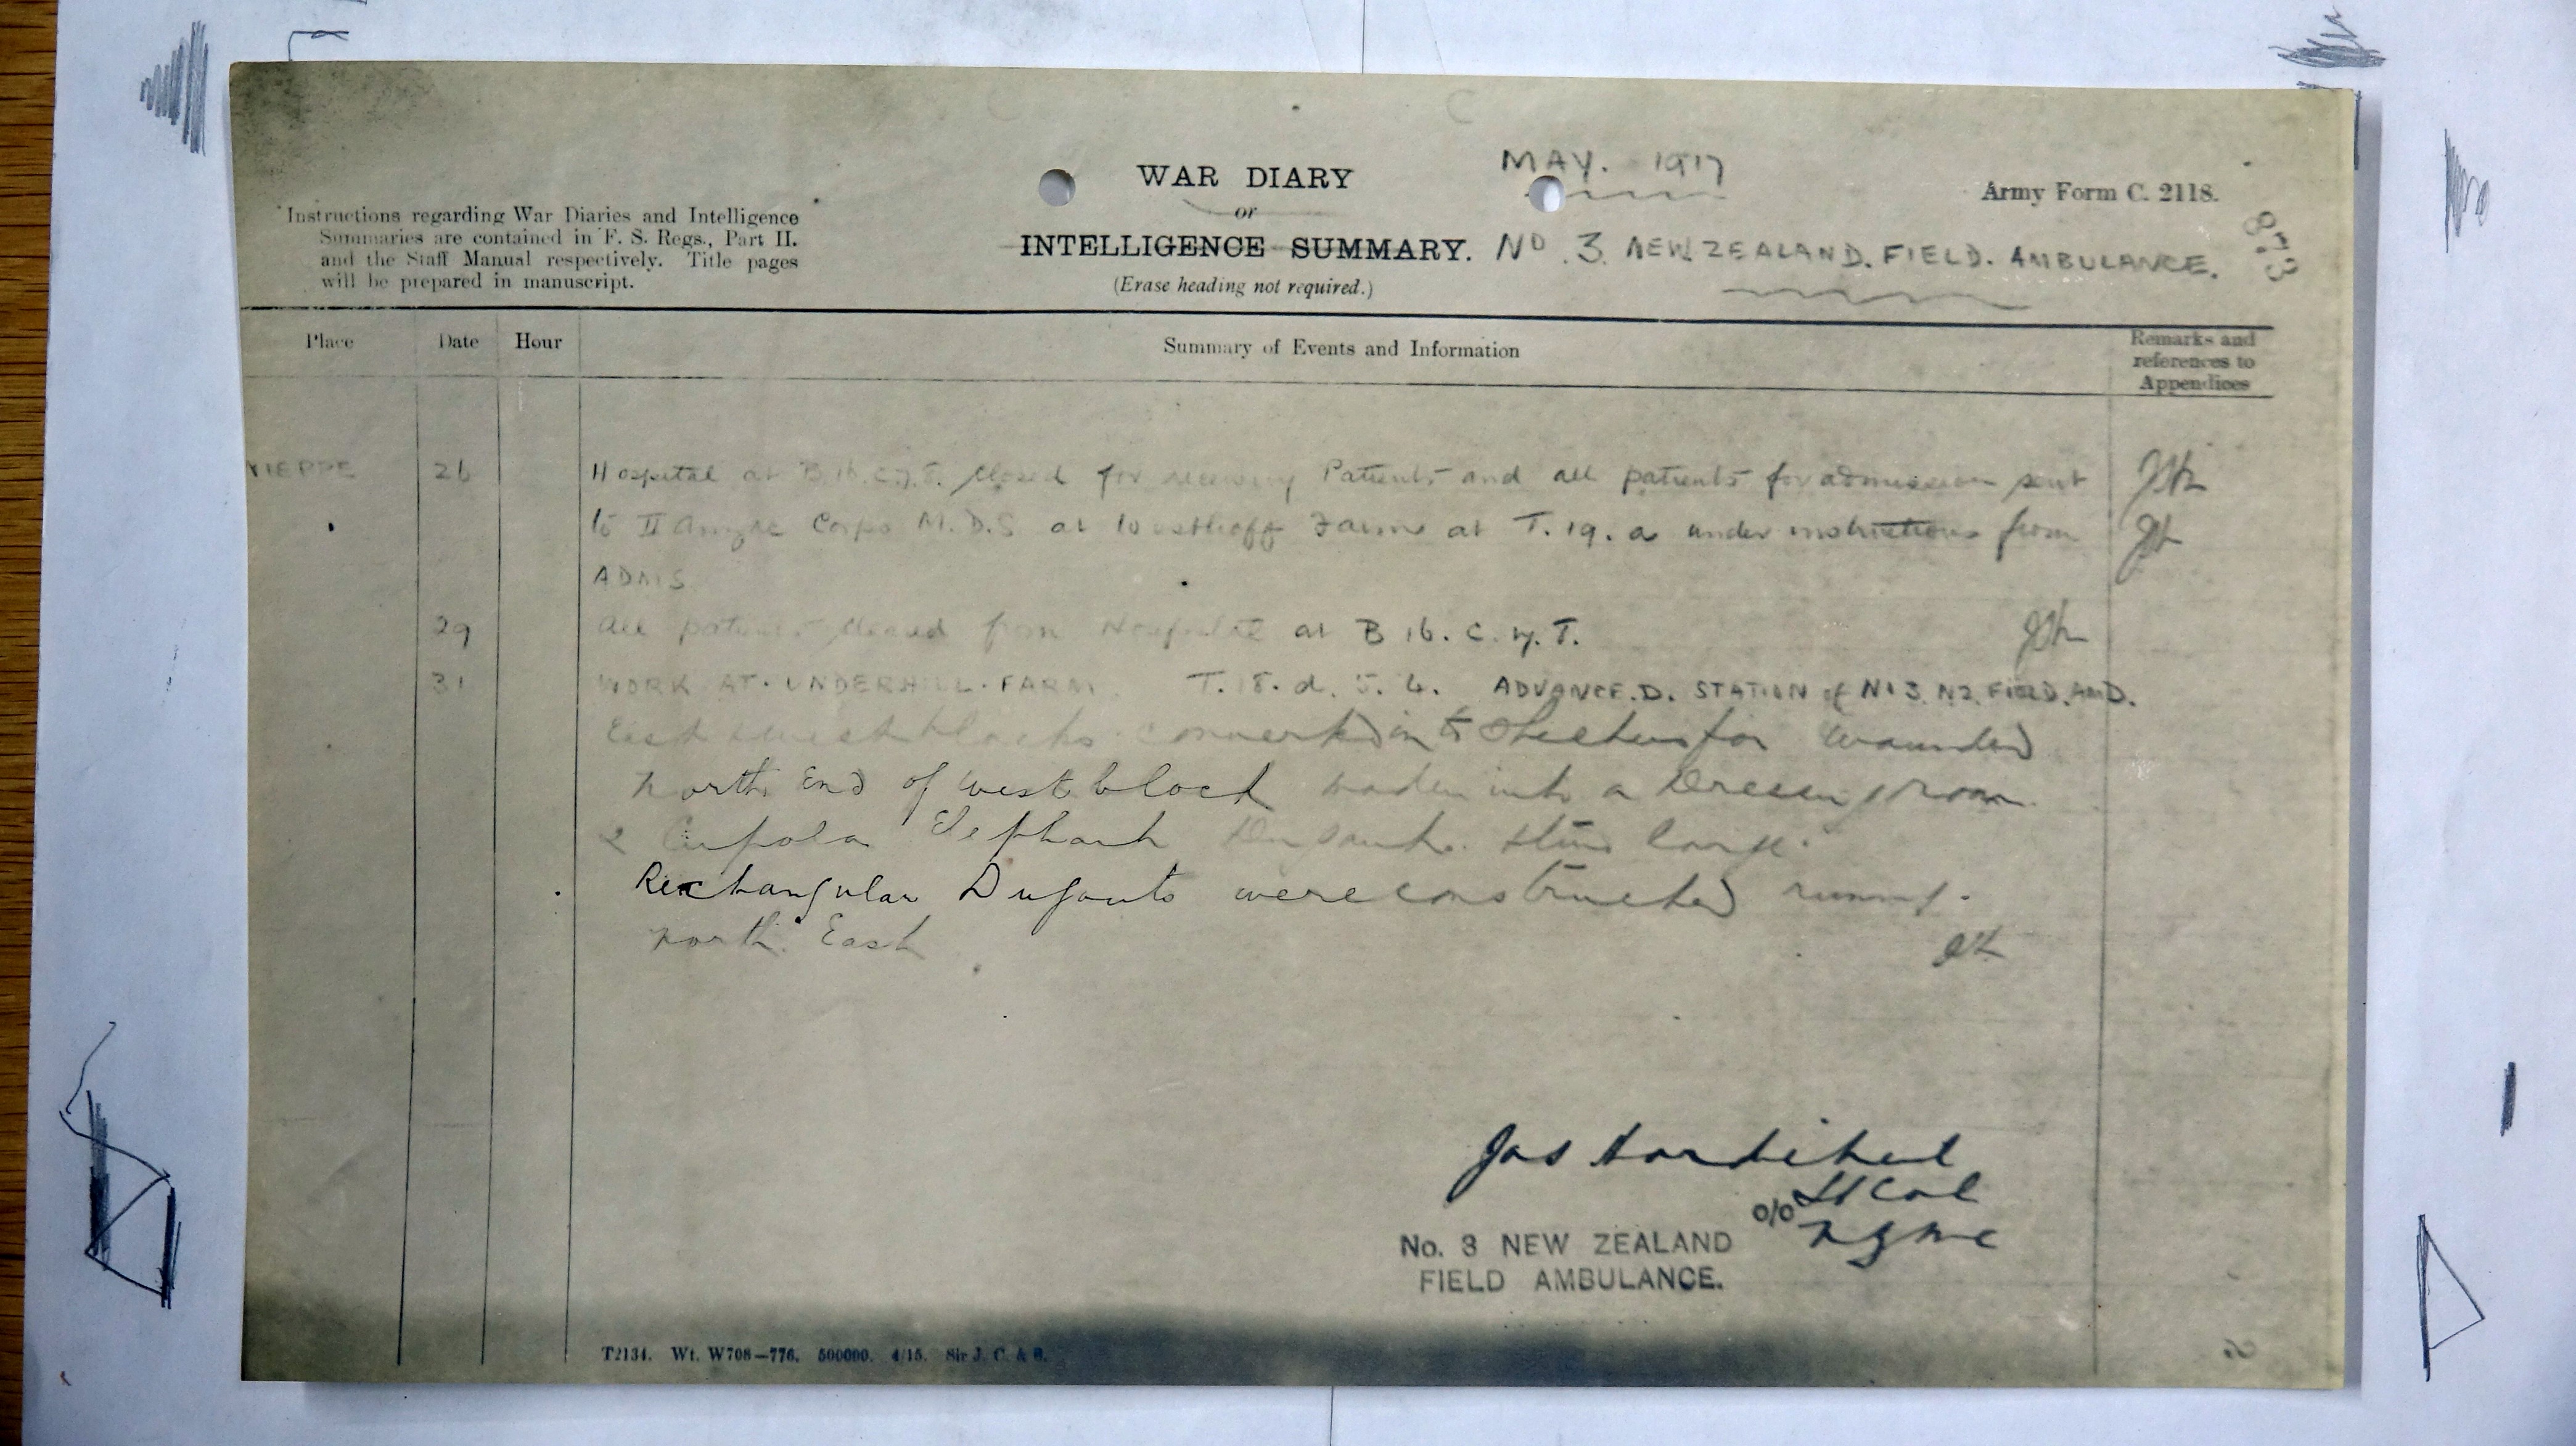 MAY. 1917
WAR DIARY
Army Form C. 2118.
Instructions regarding War Diaries and Intelligence
Summaries are contained in F. S. Regs., Part II.
and the Staff Manual respectively. Title pages
will be prepared in manuscript.
or
INTELLIGENCE SUMMARY. No. 3. NEW ZEALAND. FIELD. AMBULANCE.
(Erase heading not required.)
873
Place Date Hour Summary of Events and Information Remarks and
references to
Appendices
NIEPPE 26 Hospital at closed for receiving Patients and all patients for admission sent
to II Anzac Corps M.D.S at Westhoff Farm at T.19.a under instructions from
ADMS
29 All patients cleared from Hospital at B 16. C.
31 WORK AT. UNDERHILL. FARM. T. 18. d. 5. 4. ADVANCE.D. STATION of No 3 NZ. FIELD. AMB.
East & west blocks converted into Shelters for Wounded
North End of west block made into a Dressing room
2 Cupola Elephant Dugouts. large
Rectangular Dugouts were constructed running
North East
Jas Hardie Neil
Lt Col
o/c NZMC
No. 3 NEW ZEALAND
FIELD AMBULANCE.
T2134. Wt. W708—776. 500000. 4/15. Sir J. C. & S.